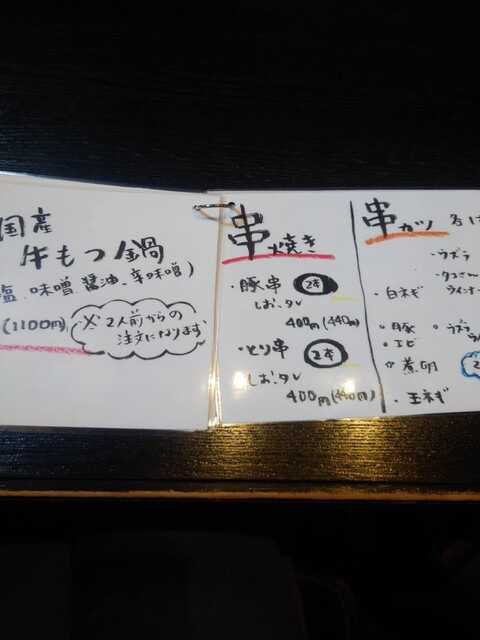 国産
牛もつ鍋
塩、味噌、醤油、辛味噌)
(1100円)
※2人前からの
注文になります
串焼き
・豚串 2本
しお、タレ
400円(440円)
・とり串 2本
しお、タレ
400円(440円)
串カツ
・ウズラ
・白ネギ
ウインナー
・豚
・エビ
・ウズラ
☆煮卵
・玉ネギ